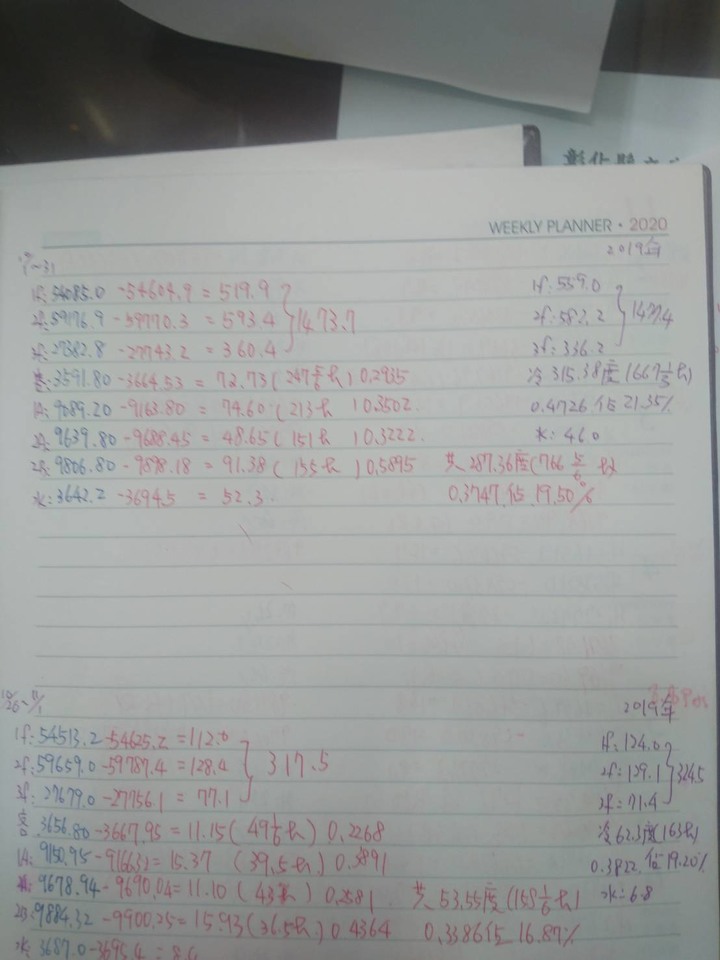 WEEKLY PLANNER • 2020
2019年
1f: 54085.0 -54604.9 = 519.9
2f: 59176.9 -59770.3 = 593.4
1473.7
3f: 27382.8 -27743.2 = 360.4
1f: 559.0
2f: 582.2
1477.4
3f: 336.2
客: 3591.80 -3664.53 = 72.73 (247 5/6 h) 0.2935
冷 315.38度 (667 1/3 h)
1A: 9089.20 -9163.80 = 74.60 (213h) 0.3502
0.4726 佔 21.35%
2A: 9639.80 -9688.45 = 48.65 (151h) 0.3222
水: 46.0
2B: 9806.80 -9898.18 = 91.38 (155h) 0.5895
共 287.36度 (766 5/6 h)
水: 3642.2 -3694.5 = 52.3
0.3747 佔 19.50%
10/26~11/1
2019年
1f: 54513.2 -54625.2 = 112.0
2f: 59659.0 -59787.4 = 128.4
317.5
3f: 27679.0 -27756.1 = 77.1
1f: 124.0
2f: 129.1
324.5
71.4
客 3656.80 -3667.95 = 11.15 (49 1/6 h) 0.2268
冷 62.3度 (163h)
1A: 9150.95 -9166.32 = 15.37 (39.5h) 0.3891
0.3822 佔 19.20%
9678.94 -9690.04 = 11.10 (43h) 0.2581
水: 6.8
2B: 9884.32 -9900.25 = 15.93 (36.5h) 0.4364
共 53.55度 (158 1/6 h)
0.3386 佔 16.87%
水: 3687.0 -3695.4 = 8.4